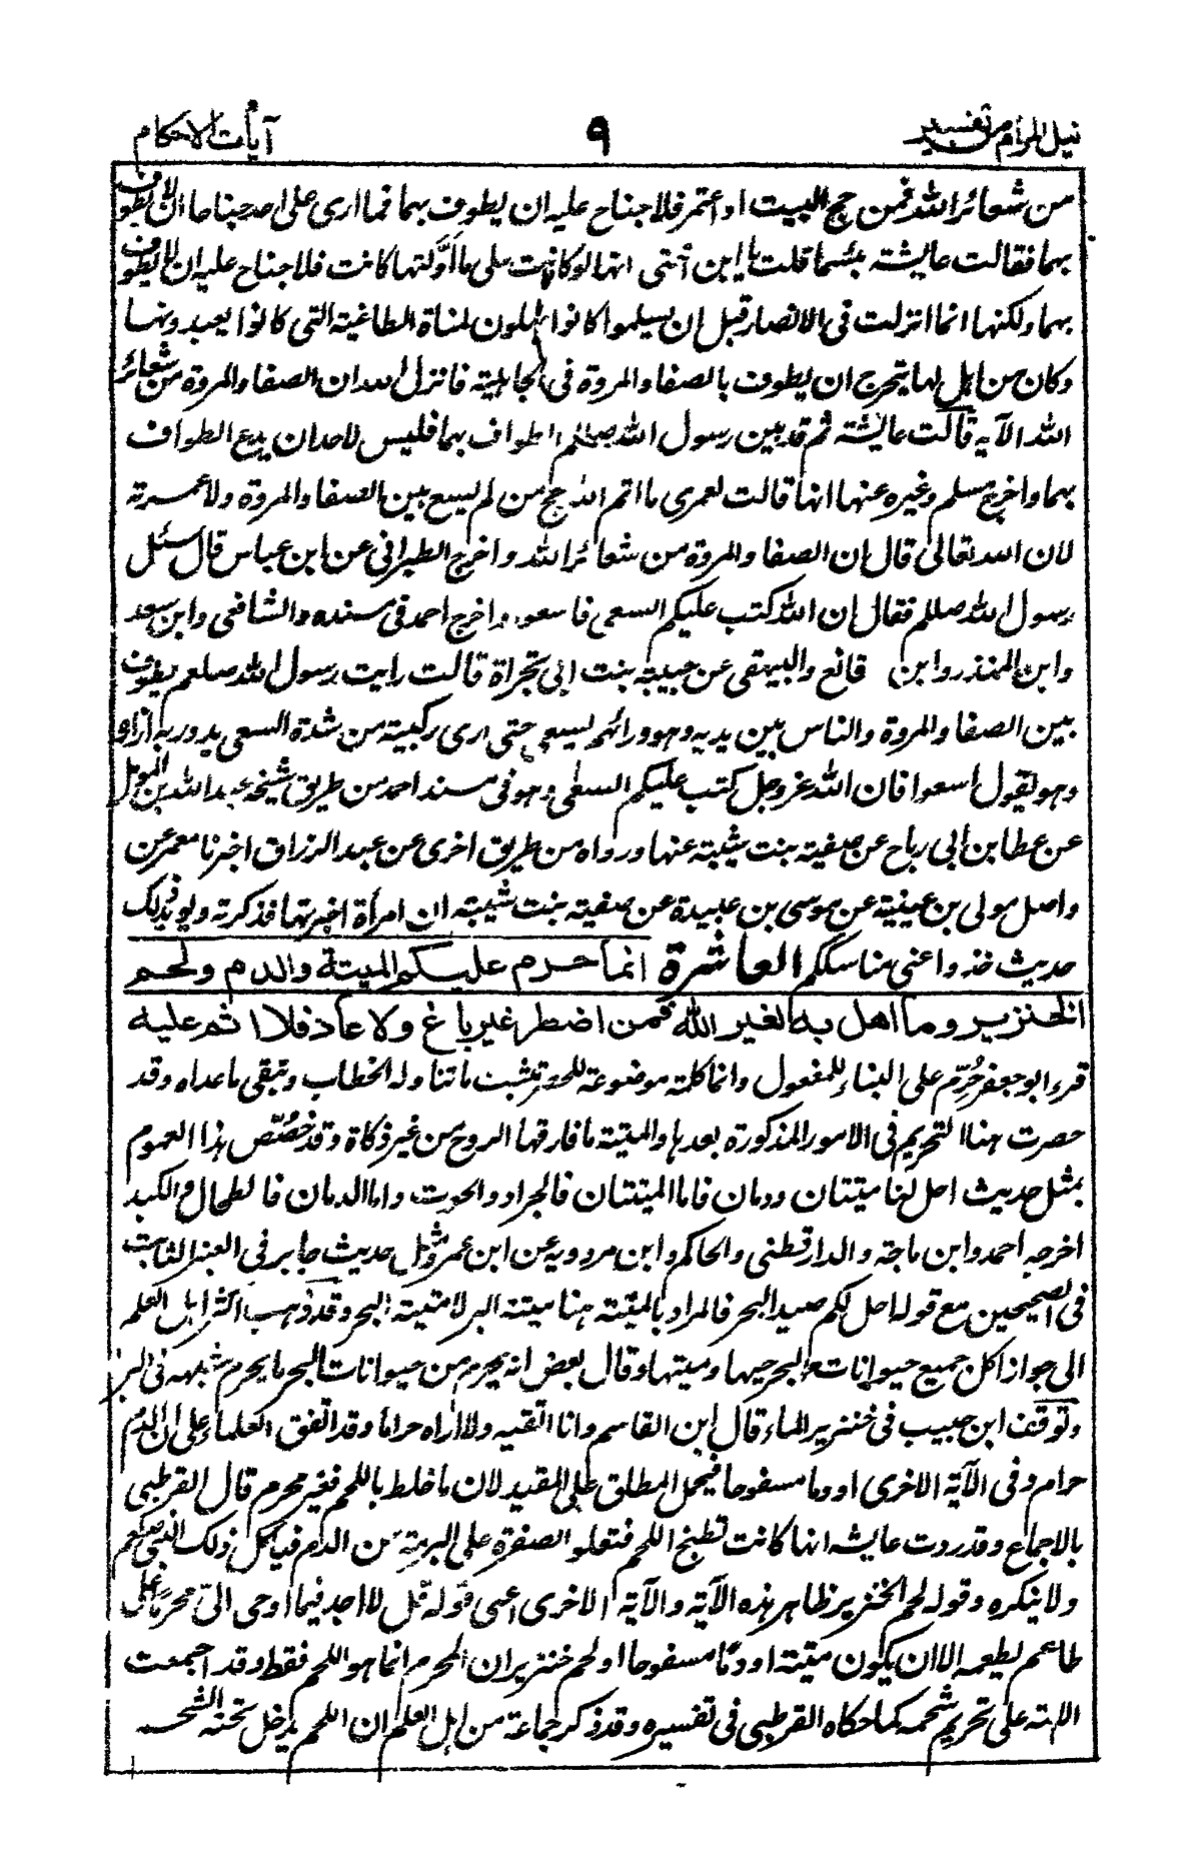 نيل المرام من تفسير
٩
آيات الاحكام
من شعائر الله فمن حج البيت او اعتمر فلا جناح عليه ان يطوف بهما فما ارى على احد جناحا ان لا يطوف
بهما فقالت عايشة بئسما قلت يا ابن اختى انها لو كانت على ما اوّلتها كانت فلا جناح عليه ان لا يطوف
بهما ولكنها انما انزلت فى الانصار قبل ان يسلموا كانوا يهلون لمناة الطاغية التى كانوا يعبدونها
وكان من اهل لها يتحرج ان يطوف بالصفا والمروة فى الجاهلية فانزل الله ان الصفا والمروة من شعائر
الله الآية قالت عايشة ثم قد بين رسول الله صللم الطواف بهما فليس لاحد ان يدع الطواف
بهما واخرج مسلم وغيره عنها انها قالت لعمرى ما اتم الله حج من لم يسع بين الصفا والمروة ولا عمرته
لان الله تعالى قال ان الصفا والمروة من شعائر الله واخرج الطبرانى عن ابن عباس قال سئل
رسول الله صللم فقال ان الله كتب عليكم السعى فاسعوا واخرج احمد فى مسنده والشافعى وابن سعد
وابن المنذر وابن قانع والبيهقى عن حبيبة بنت ابى تجراة قالت رايت رسول الله صلعم يطوف
بين الصفا والمروة والناس بين يديه وهو ورائهم يسعى حتى ارى ركبتيه من شدة السعى يدور به ازاره
وهو يقول اسعوا فان الله عز وجل كتب عليكم السعى وهو فى مسند احمد من طريق شيخه عبد الله بن المؤمل
عن عطا بن ابى رباح عن صفية بنت شيبة عنها ورواه من طريق اخرى عن عبد الرزاق اخبرنا معمر عن
واصل مولى بن عيينة عن موسى بن عبيدة عن صفية بنت شيبة ان امرأة اخبرتها فذكرته ويويد ذلك
حديث خذوا عنى مناسككم العاشرة انما حرم عليكم الميتة والدم ولحم
الخنزير وما اهل به لغير الله فمن اضطر غير باغ ولا عاد فلا اثم عليه
قرء ابو جعفر حُرِّم على البناء للمفعول وانما كلمة موضوعة للحصر تثبت ما تناوله الخطاب وتنفى ما عداه وقد
حصرت هنا التحريم فى الامور المذكورة بعدها والميتة ما فارقها الروح من غير ذكاة وقد خُصّص هذا العموم
بمثل حديث احل لنا ميتتان ودمان فاما الميتتان فالجراد والحوت واما الدمان فالطحال والكبد
اخرجه احمد وابن ماجة والدارقطنى والحاكم وابن مردويه عن ابن عمر ومثل حديث جابر فى العنبر الثابت
فى الصحيحين مع قوله احل لكم صيد البحر فالمراد بالميتة هنا ميتة البر لا ميتة البحر وقد ذهب اكثر اهل العلم
الى جواز اكل جميع حيوانات البحر حيها وميتها وقال بعض انه يحرم من حيوانات البحر ما يحرم شبهه فى البر
وتوقف ابن حبيب فى خنزير الماء قال ابن القاسم وانا اتقيه ولا اراه حراما وقد اتفق العلماء على ان الدم
حرام وفى الآية الاخرى او دما مسفوحا فيحمل المطلق على المقيد لان ما خلط باللحم فغير محرم قال القرطبى
بالاجماع وقد روت عايشه انها كانت تطبخ اللحم فتعلو الصفرة على البرمة من الدم فياكل ذلك النبى صلعم
ولا ينكره وقوله لحم الخنزير ظاهر هذه الآية والآية الاخرى اعنى قوله قل لا اجد فيما اوحى الىّ محرما على
طاعم يطعمه الا ان يكون ميتة او دمًا مسفوحا او لحم خنزير ان المحرم انما هو اللحم فقط وقد اجمعت
الامة على تحريم شحمه كما حكاه القرطبى فى تفسيره وقد ذكر جماعة من اهل العلم ان اللحم يدخل تحته الشحم